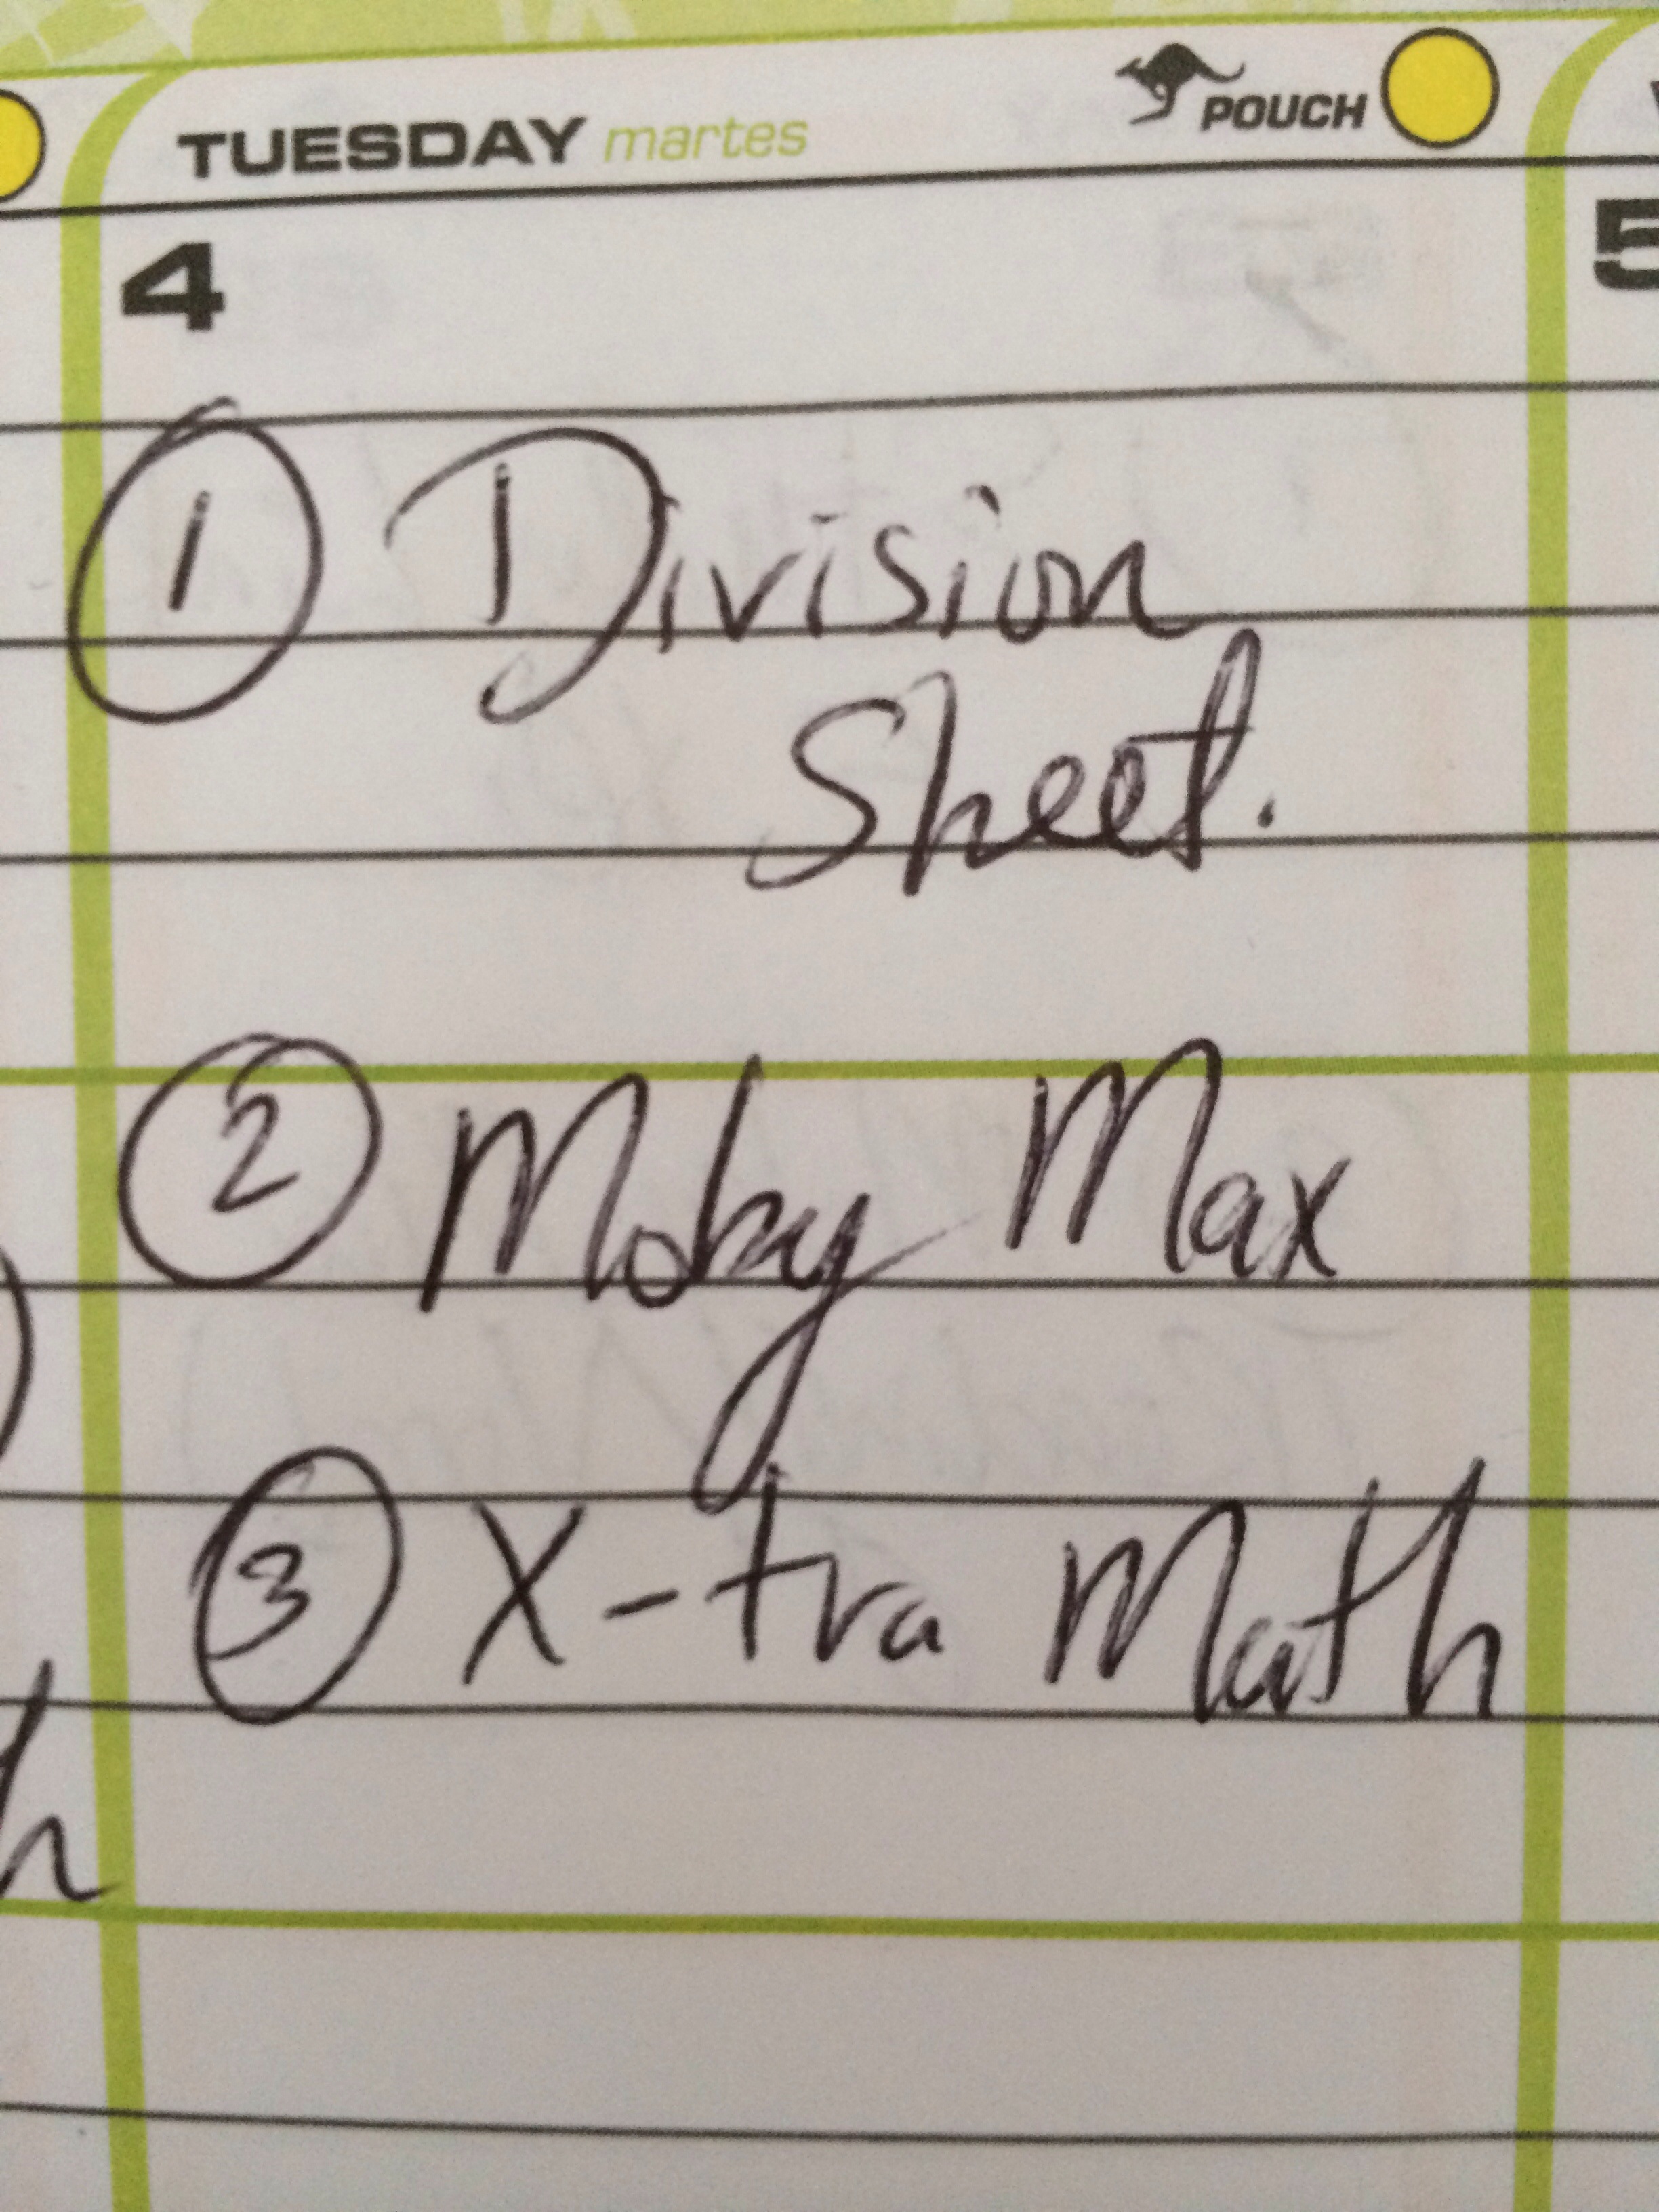 TUESDAY martes POUCH
4 5
① Division
Sheet.
② Moby Max
③ X-tra Math
h